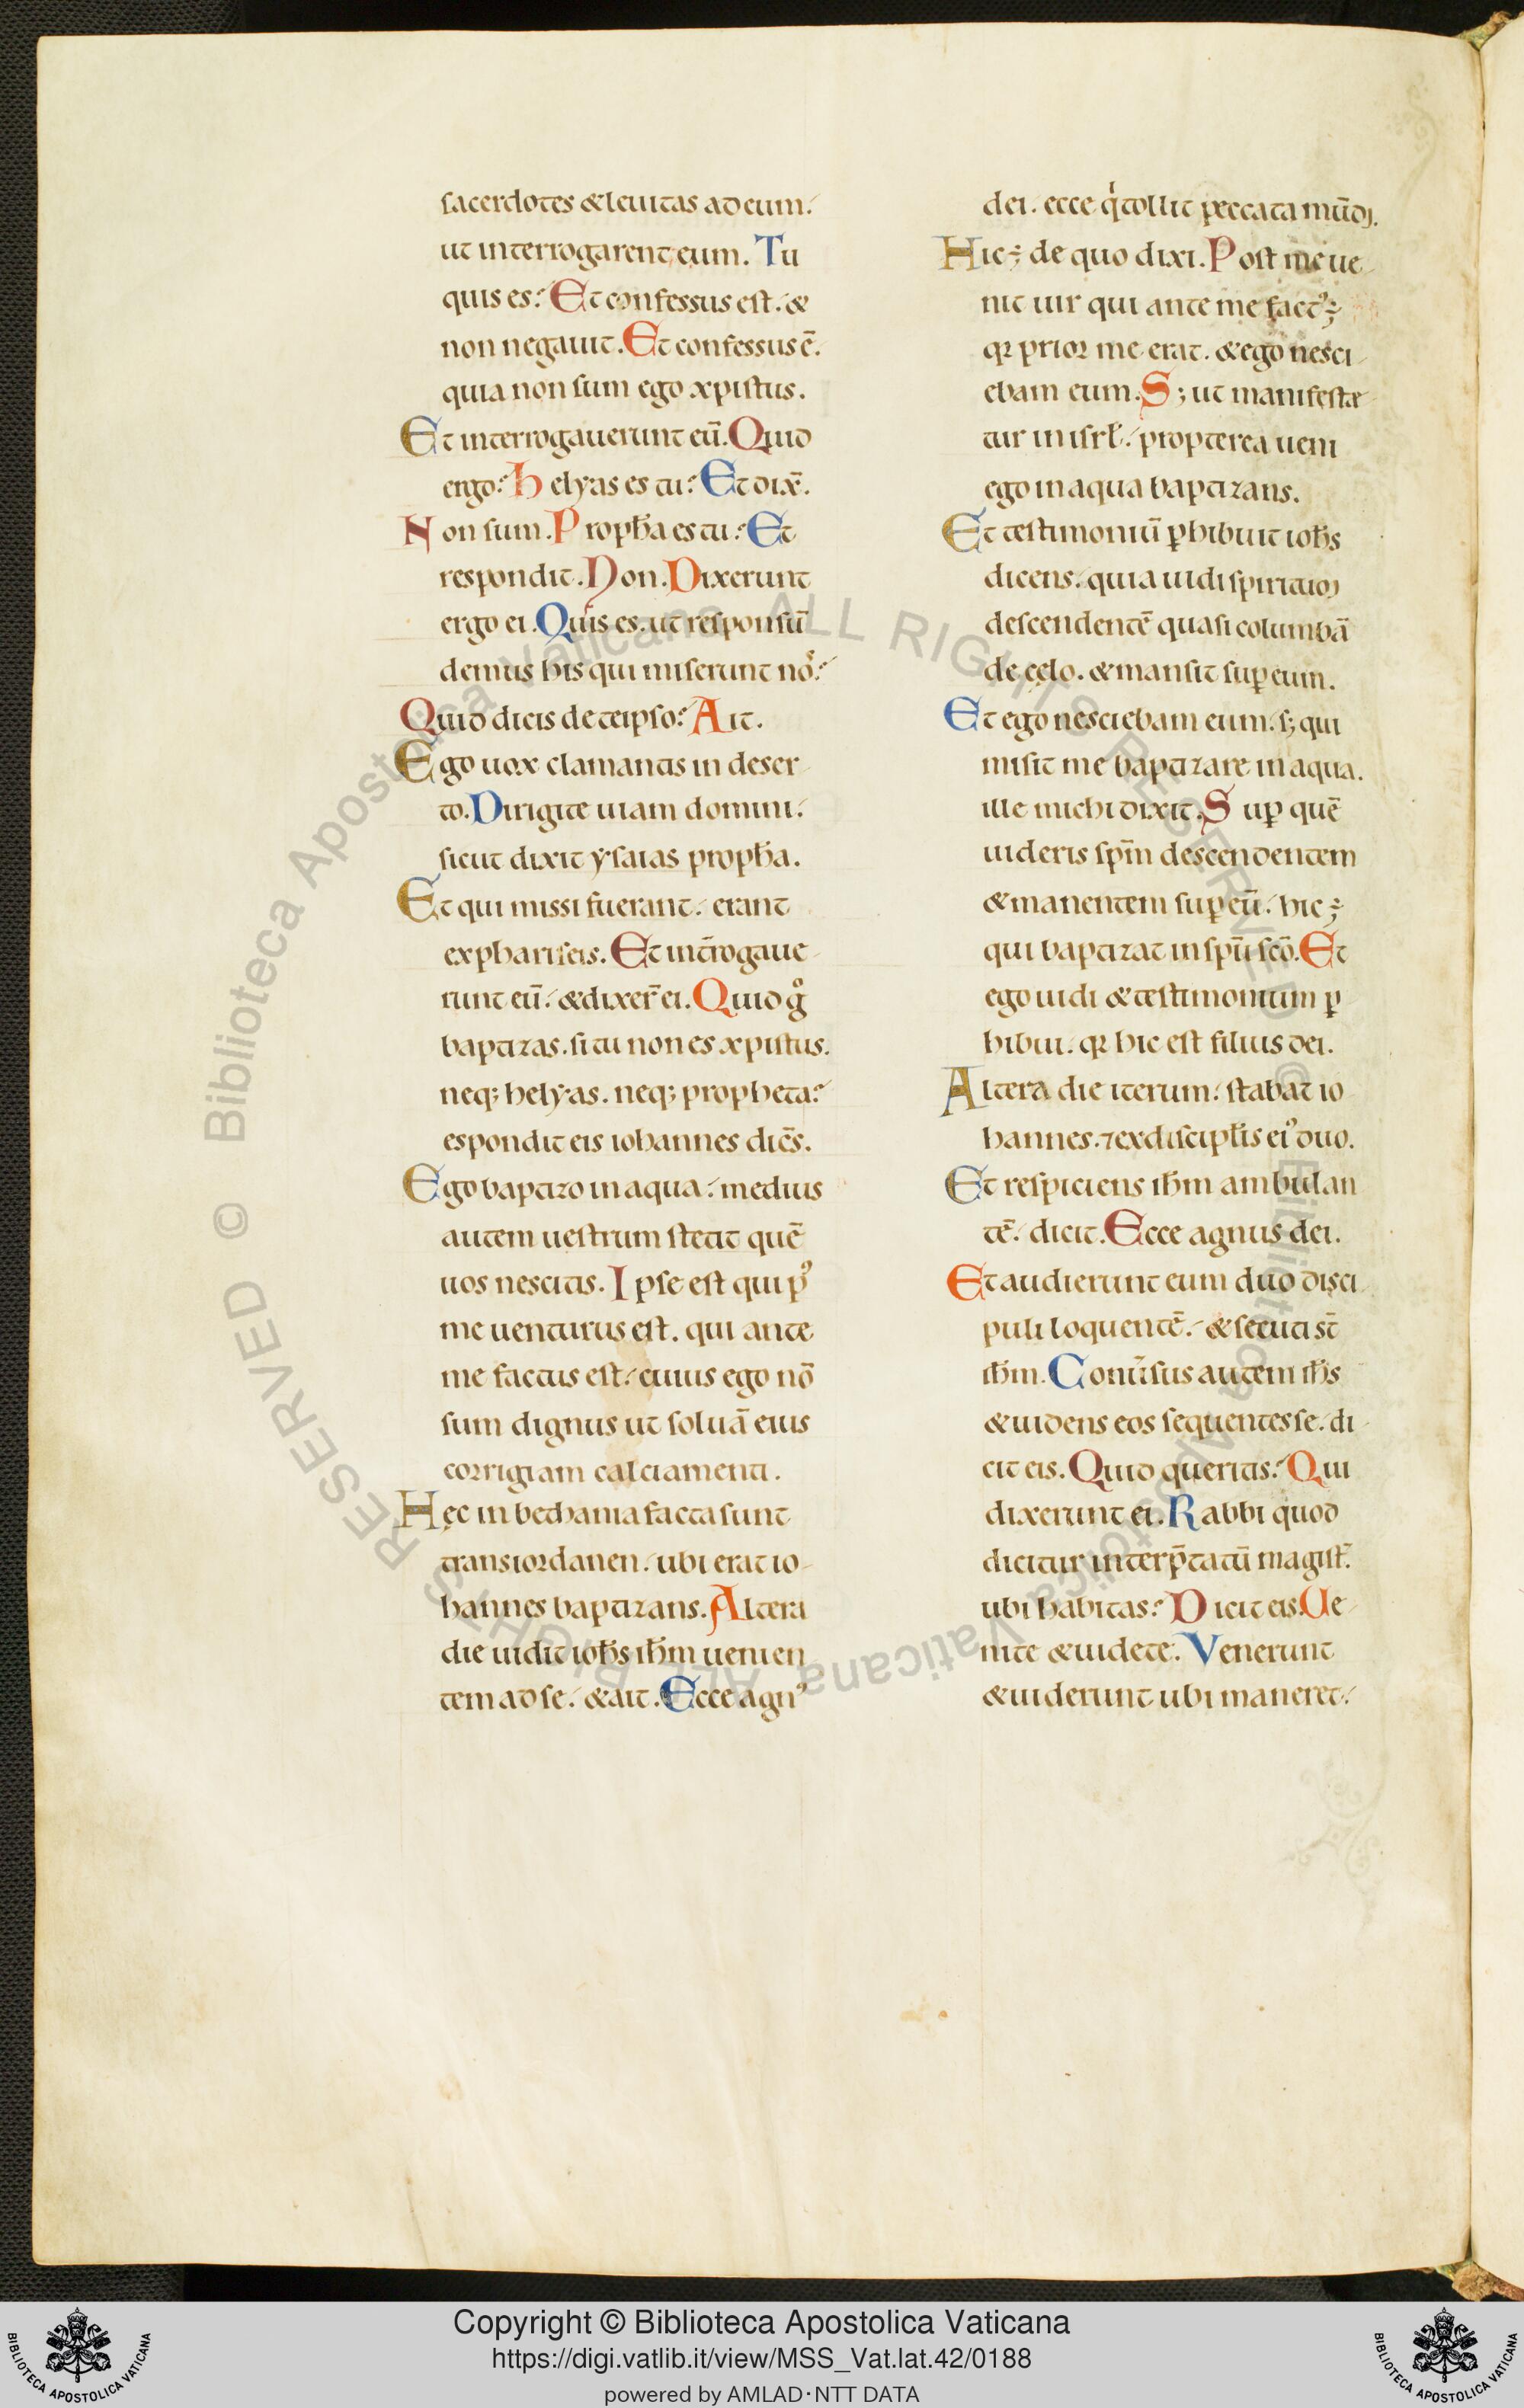 sacerdotes & leuitas ad eum.
ut interrogarent eum. Tu
quis es? Et confessus est. &
non negauit. Et confessus ē.
quia non sum ego xpistus.
Et interrogauerunt eū. Quid
ergo? helyas es tu? Et dix̄.
Non sum. Proph̄a es tu? Et
respondit. Non. Dixerunt
ergo ei. Quis es. ut responsū
demus his qui miserunt noˢ?
Quid dicis de teipso? Ait.
Ego uox clamantis in deser
to. Dirigite uiam domini.
sicut dixit ysaias proph̄a.
Et qui missi fuerant. erant
ex phariseis. Et int̄rogaue
runt eū. & dixer̄ ei. Quid gͦ
baptizas. si tu non es xpistus.
neq; helyas. neq; propheta?
espondit eis iohannes dic̄s.
Ego baptizo in aqua. medius
autem uestrum stetit quē
uos nescitis. Ipse est qui pꝰ
me uenturus est. qui ante
me factus est. cuius ego nō
sum dignus ut soluā eius
corrigiam calciamenti.
Hęc in bethania facta sunt
trans iordanen. ubi erat io
hannes baptizans. Altera
die uidit ioh̄s ih̄m uenien
tem ad se. & ait. Ecce agnꝰ
dei. ecce qⁱ tollit peccata mūdi.
Hic ÷ de quo dixi. Post me ue
nit uir qui ante me factꝰ ÷
qꝛ prior me erat. & ego nesci
ebam eum. S; ut manifeste
tur in isrl̄. propterea ueni
ego in aqua baptizans.
Et testimoniū ꝑhibuit ioh̄s
dicens. quia uidi spiritum
descendentē quasi columbā
de cęlo. & mansit suꝑ eum.
Et ego nesciebam eum. s; qui
misit me baptizare in aqua.
ille michi dixit. Suꝑ quē
uideris sp̄m descendentem
& manentem suꝑ eū. hic ÷
qui baptizat in sp̄u sc̄o. Et
ego uidi & testimonium ꝑ
hibui. qꝛ hic est filius dei.
Altera die iterum. stabat io
hannes. ⁊ ex discipl̄is eiꝰ duo.
Et respiciens ih̄m ambulan
tē. dicit. Ecce agnus dei.
Et audierunt eum duo disci
puli loquentē. & secuti st̄
ih̄m. Conu̾sus autem ih̄s
& uidens eos sequentes se. di
cit eis. Quid queritis? Qui
dixerunt ei. Rabbi quod
dicitur interp̄tatū magist̄.
ubi habitas? Dicit eis. Ue
nite & uidete. Venerunt
& uiderunt ubi maneret.
© Biblioteca Apostolica Vaticana ALL RIGHTS RESERVED © Biblioteca Apostolica Vaticana ALL RIGHTS RESERVED
Copyright © Biblioteca Apostolica Vaticana
https://digi.vatlib.it/view/MSS_Vat.lat.42/0188
powered by AMLAD·NTT DATA
BIBLIOTECA APOSTOLICA VATICANA
BIBLIOTECA APOSTOLICA VATICANA